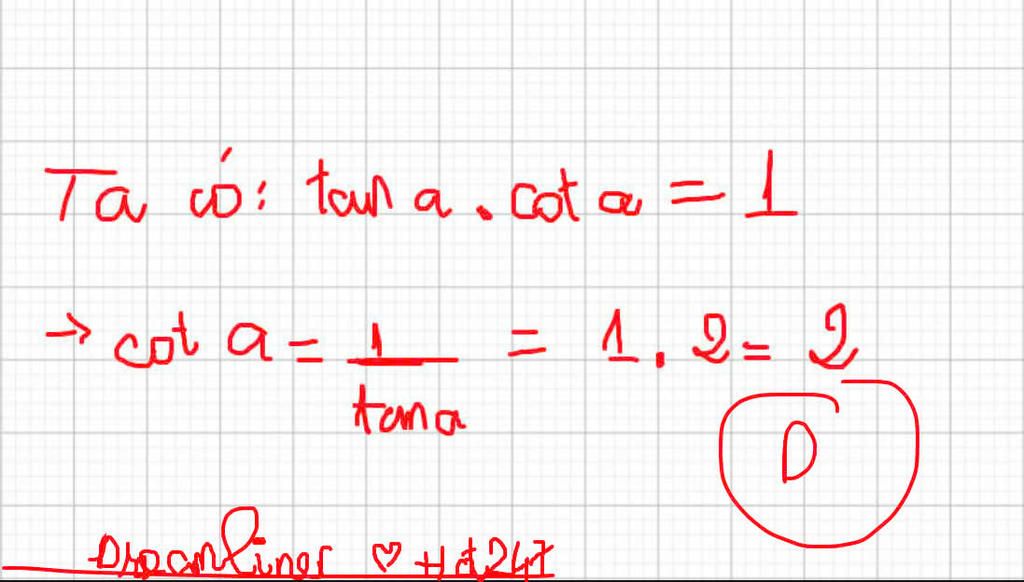 Ta có: tan a . cot a = 1
→ cot a = 1 / tan a = 1 . 2 = 2
D
Dreamliner ♡ Hd247